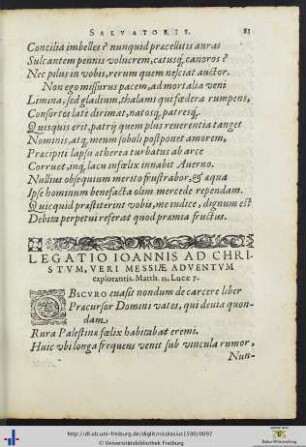 SALVATORIS. 83
Concilia imbelles? nunquid præcellitis auras
Sulcantem pennis volucrem, catusq́, canoros?
Nec pilus in vobis, rerum quem nesciat auctor.
Non ego missurus pacem, ad mortalia veni
Limina, sed gladium, thalami qui fœdera rumpens,
Consortes latè dirimat, natosq́, patresq́.
Quisquis erit, patrij quem plus reuerentia tanget
Nominis, atq́ meum soboli postponet amorem,
Præcipiti lapsu ætherea turbatus ab arce
Corruet, inq́ lacu infœlix innabit Auerno.
Nullius obsequium merito frustrabor, & æqua
Ipse hominum benefacta olim mercede rependam.
Quicquid præstiterint vobis, me iudice, dignum est
Debita perpetui referat quod præmia fructus.
LEGATIO IOANNIS AD CHRI-
STVM, VERI MESSIÆ ADVENTVM
explorantis. Matth. 11. Lucæ 7.
OBSCVRO euasit nondum de carcere liber
Præcursor Domini vates, qui deuia quon-
dam
Rura Palestinæ fœlix habitabat eremi.
Huic vbi longa frequens venit sub vincula rumor,
Nun-
http://dl.ub.uni-freiburg.de/diglit/nicolausius1590/0097
© Universitätsbibliothek Freiburg
Baden-Württemberg